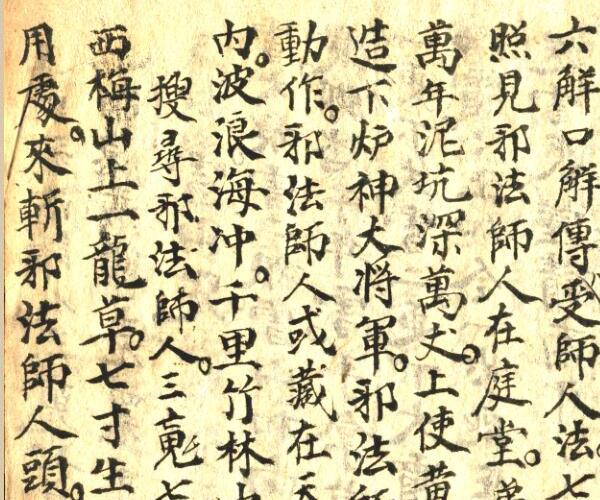 六解口解傳受師人法七
照見邪法師人在庭堂。
萬年泥坑深萬丈。上使黃
造下炉神大将軍。邪法師
動作。邪法師人或藏在天
內。波浪海冲。千里竹林
搜尋邪法師人。三
西梅山上一龍草。七寸生
用處。來斬邪法師人頭。